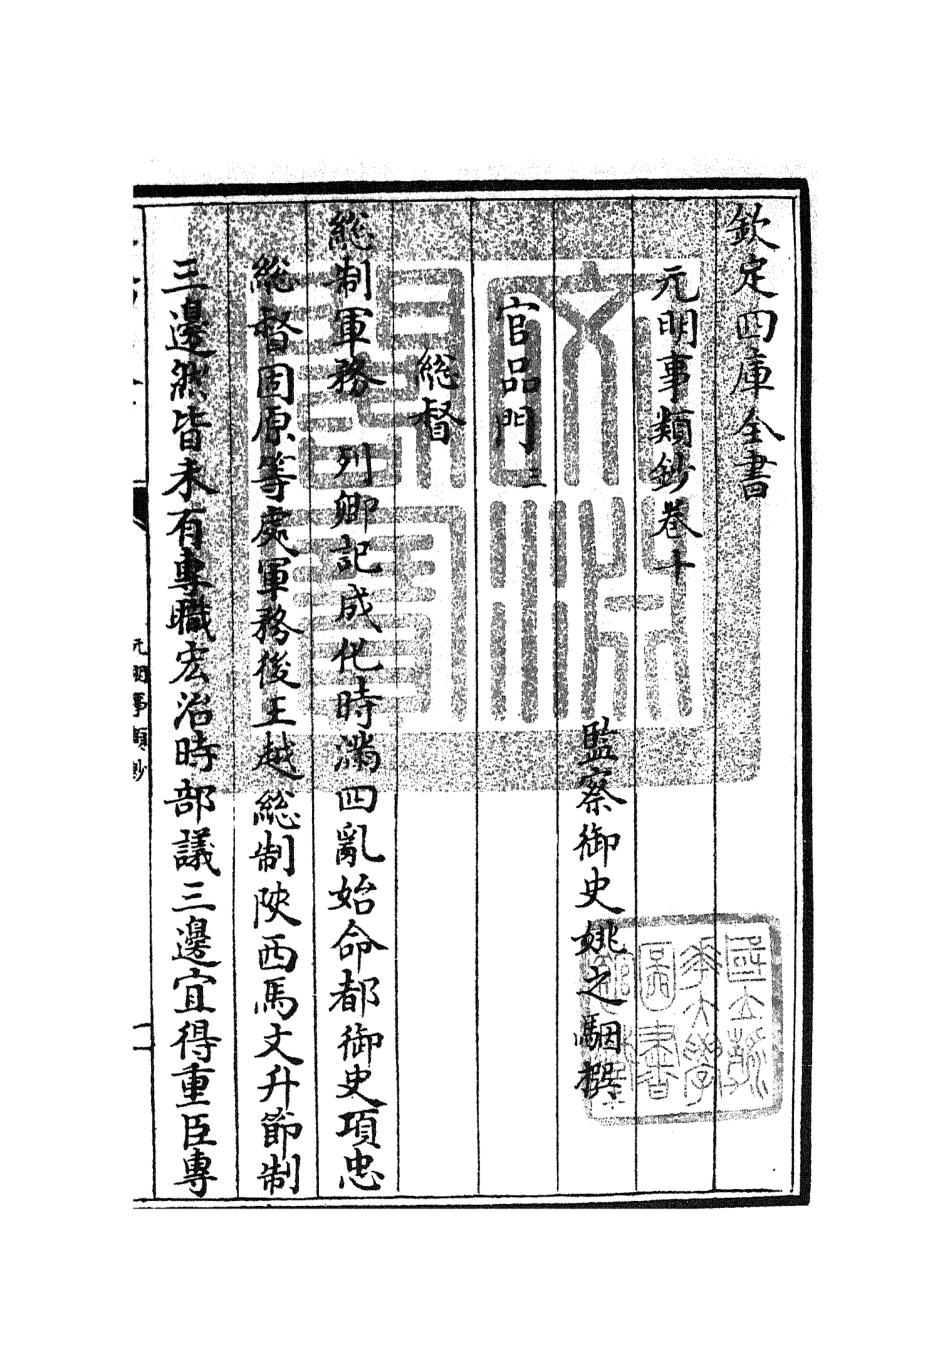 欽定四庫全書
元明事類鈔卷十
監察御史姚之駰撰
官品門三
總督
總制軍務 列卿記成化時滿四亂始命都御史項忠
總督固原等處軍務後王越總制陜西馬文升節制
三邊然皆未有專職宏治時部議三邊宜得重臣專
元明事類鈔